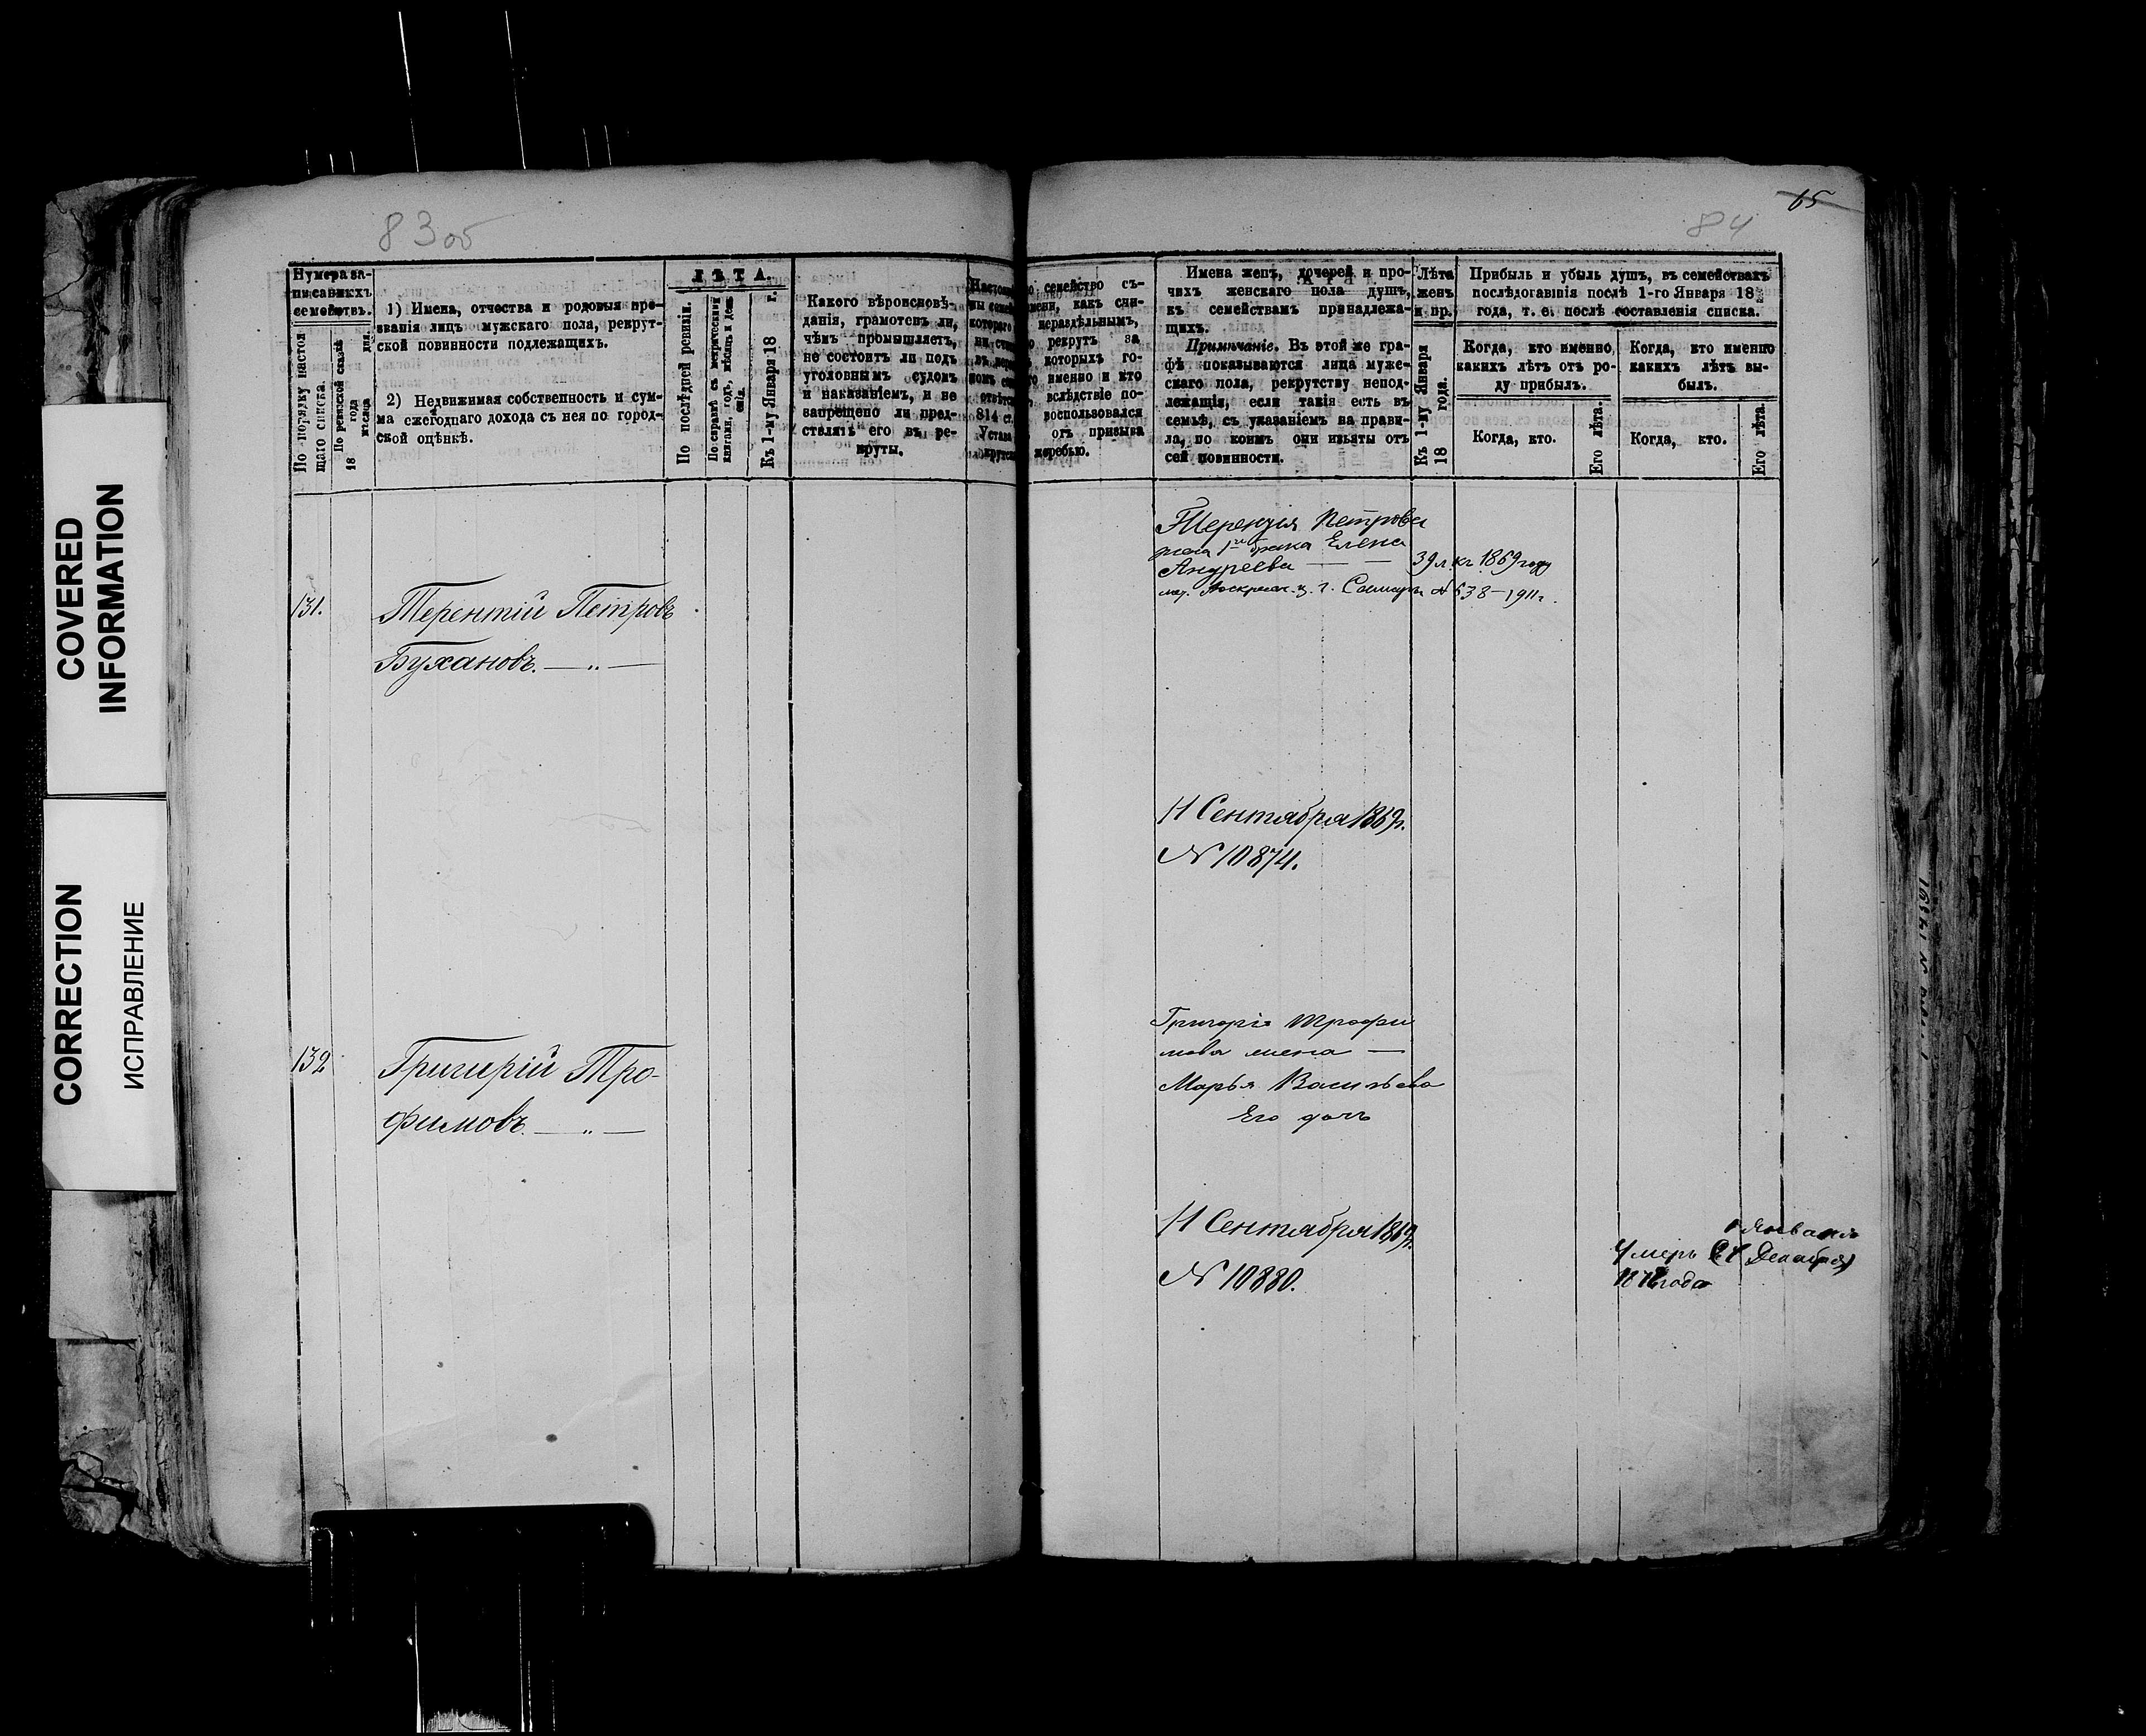 COVERED
INFORMATION
CORRECTION
ИСПРАВЛЕНИЕ
83об
Нумера за-
писанихъ
семействъ.
По порядку настоя
щаго списка.
По ревизской сказкѣ
18 года мѣсяца дня.
1) Имена, отчества и родовыя про-
званія лицъ мужскаго пола, рекрут-
ской повинности подлежащихъ.
2) Недвижимая собственность и сум-
ма ежегоднаго дохода съ нея по город-
ской оцѣнкѣ.
ЛѢТА.
По послѣдней ревизіи.
По справкѣ съ метрическими
книгами, годъ, мѣсяцъ и день
Къ 1-му Января 18 г.
Какого вѣроисповѣ-
данія, грамотенъ ли,
чѣмъ промышляетъ,
не состоитъ ли подъ
уголовнымъ судомъ
и наказаніемъ, и не
запрещено ли пред-
ставлять его въ ре-
круты.
131.
Терентій Петровъ
Бухановъ. — „ —
132
Григорій Тро-
фимовъ. — „ —
65
84
семейство съ-
мени, какъ сли-
нераздѣльнымъ,
рекрутъ за
которыхъ го-
именно и кто
вслѣдствіе по-
воспользовался
отъ призыва
жеребью.
Имена женъ, дочерей и про-
чихъ женскаго пола душъ,
къ семействамъ принадлежа-
щихъ.
Примѣчаніе. Въ этой же гра-
фѣ показываются лица муже-
скаго пола, рекрутству непод-
лежащія, если такія есть въ
семьѣ, съ указаніемъ на прави-
ла, по коимъ они изъяты отъ
сей повинности.
Лѣта
женъ
и пр.
Къ 1-му Января
18 года.
Прибыль и убыль душъ, въ семействахъ
послѣдовавшія послѣ 1-го Января 18
года, т. е. послѣ составленія списка.
Когда, кто именно
какихъ лѣтъ отъ ро-
ду прибылъ.
Когда, кто именно
какихъ лѣтъ вы-
былъ.
Когда, кто.
Его лѣта.
Когда, кто.
Его лѣта.
Терентія Петрова
жена 1го брака Елена
Андреева — — 39 л. къ 1869 году
г. Самары № 638–1911 г.
11 Сентября 1869 г.
№ 10874.
Григорія Трофи
мова жена —
Марья Васильева
Его дочь
11 Сентября 1869 г.
№ 10880.
Умеръ Декабря
года